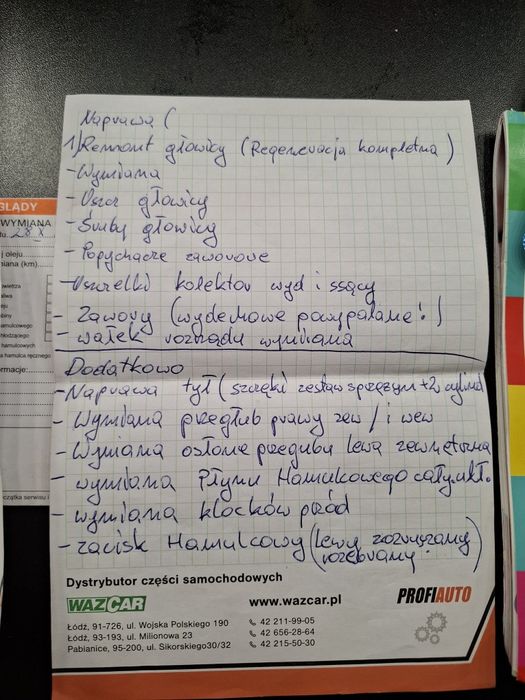 Naprawa (
1) Remont głowicy (Regeneracja kompletna)
- Wymiana
- Uszcz głowicy
- Śruby głowicy
- Popychacze zaworowe
- Uszczelki kolektor wyd i ssący
- Zawory (wydechowe powypalane!)
- wałek rozrządu wymiana
Dodatkowo
- Naprawa tył (szczęki zestaw sprężyn + 2 cylind
- Wymiana przegłub prawy zew / i wew
- Wymiana osłone przegubu lewa zewnętrzna
- wymiana Płynu Hamulkowego całyukł.
- wymiana klocków przód
- zacisk Hamulcowy (lewy rozruszamy rozebramy)
Dystrybutor części samochodowych
WAZCAR
www.wazcar.pl
PROFIAUTO
Łódź, 91-726, ul. Wojska Polskiego 190
42 211-99-05
Łódź, 93-193, ul. Milionowa 23
42 656-28-64
Pabianice, 95-200, ul. Sikorskiego30/32
42 215-50-30
GLĄDY
WYMIANA
j oleju
iana (km)
wietrza
aliwa
eju
biny
hamulcowego
hłodzącego
hamulcowych
a hamulca ręcznego
ormacje:
czątka serwisu i